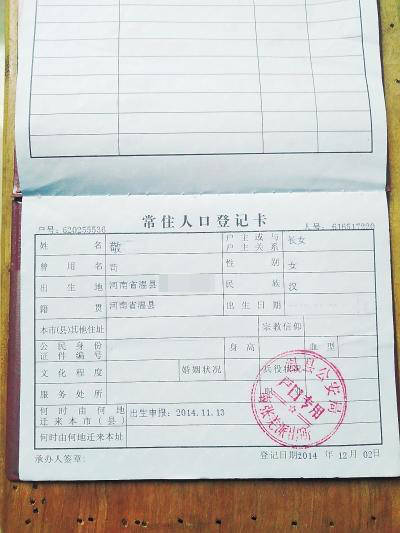 常住人口登记卡
户号: 620255536 人号: 616517220
姓名 敬 户主或与户主关系 长女
曾用名 苟 性别 女
出生地 河南省温县 民族 汉
籍贯 河南省温县 出生日期
本市(县)其他住址 宗教信仰
公民身份证件编号 身高 血型
文化程度 婚姻状况 兵役状况
服务处所
何时由何地迁来本市(县) 出生申报: 2014.11.13
何时由何地迁来本址
温县公安局
户口专用
派出所
承办人签章: 登记日期: 2014 年 12 月 02 日